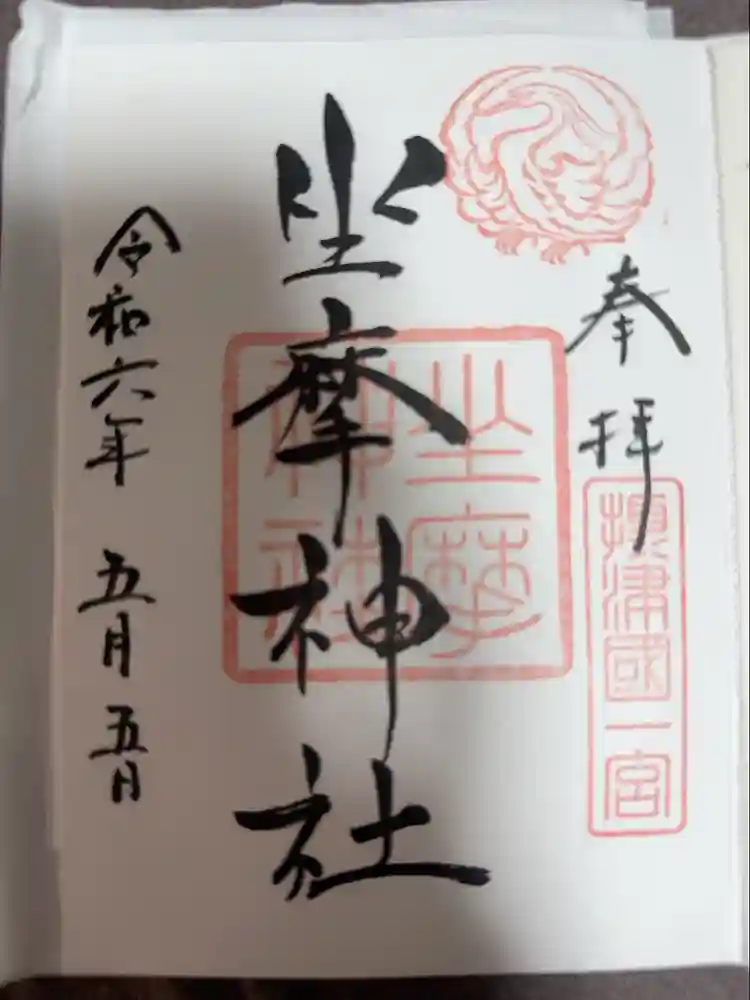 奉拝
摂津國一宮
坐摩神社
坐摩神社
令和六年 五月 五日